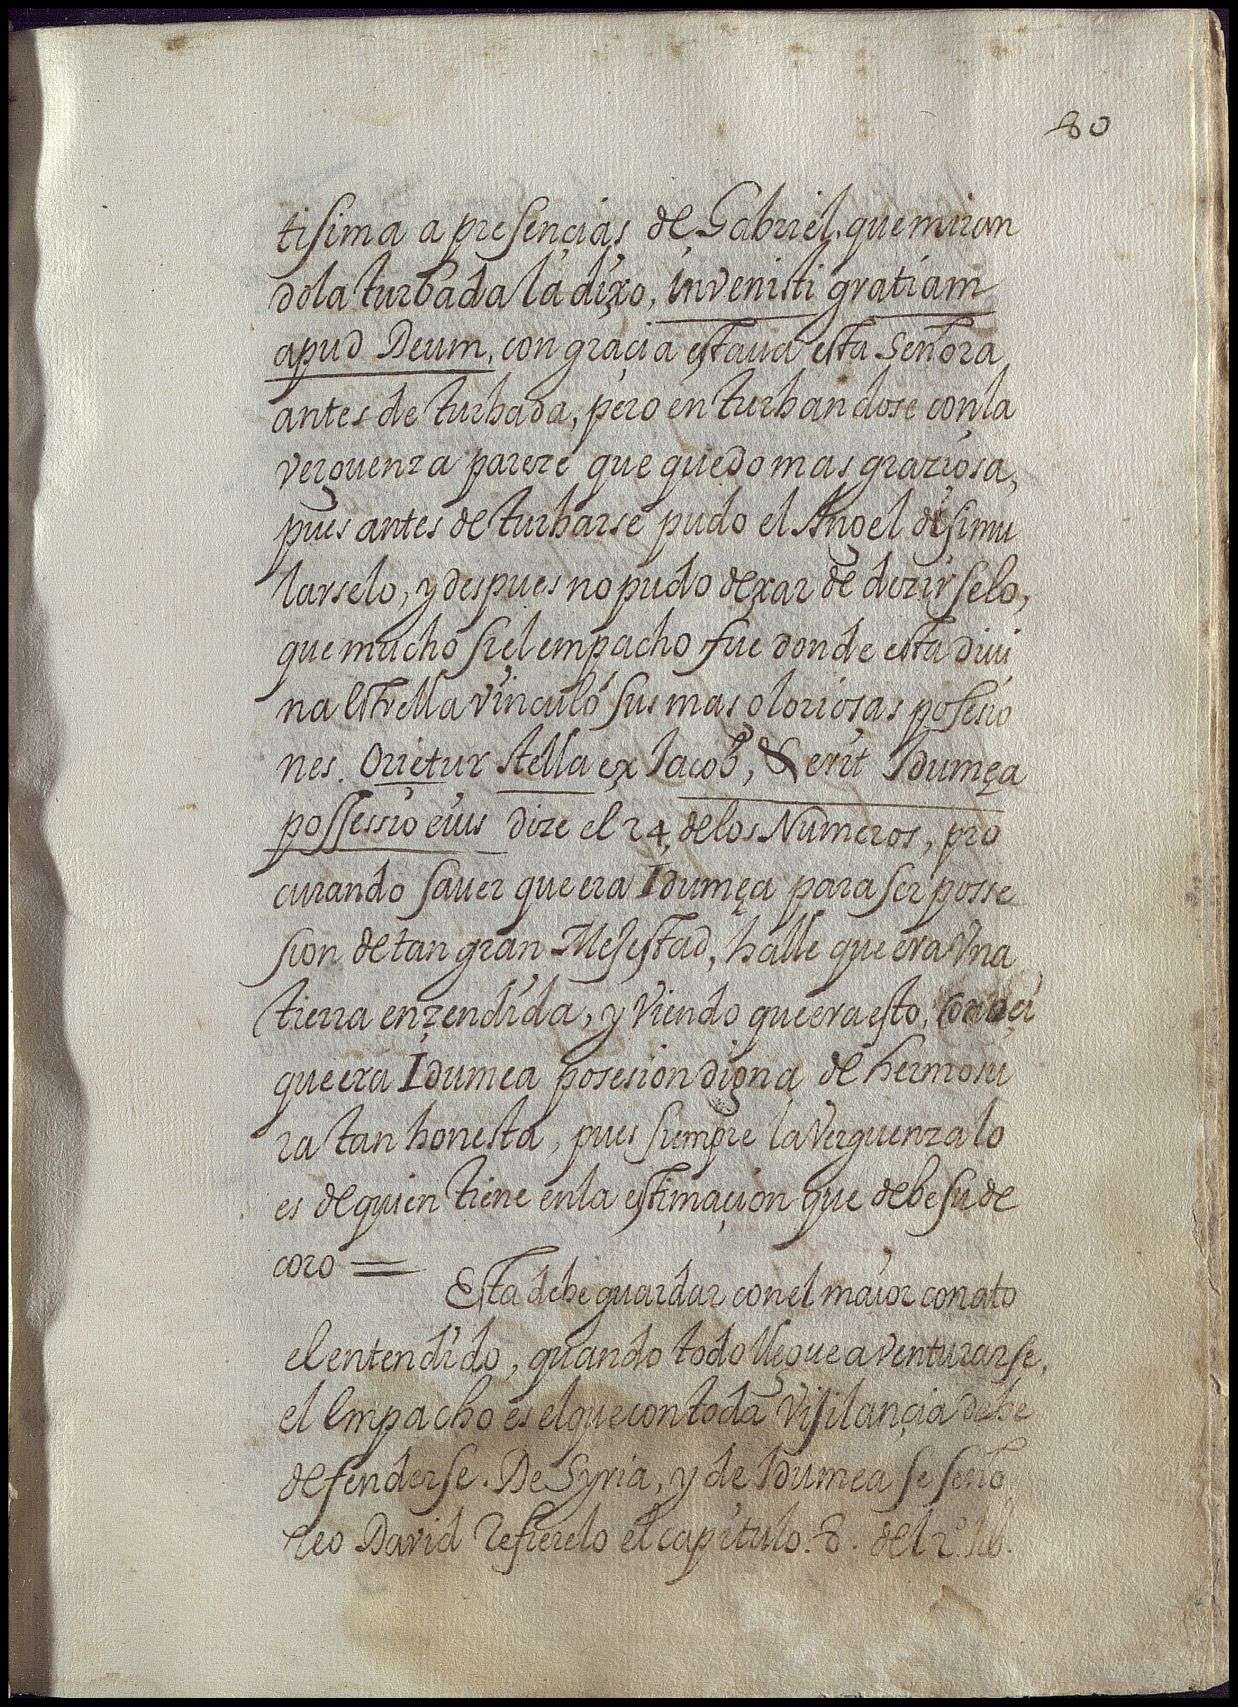 80
tisima a presençias de Gabriel, que miran
dola turbada la dixo, invenisti gratiam
apud Deum, con graçia estaua esta Señora
antes de turbada, pero en turbandose con la
verguenza pareze que quedo mas graziosa,
pues antes de turbarse pudo el Angel disimu
larselo, y despues no pudo dexar de dezirselo,
que mucho si el empacho fue donde esta diui
na Estrella vinculó sus mas gloriosas posesio
nes. Orietur stella ex Jacob, & erit Idumęa
possessio eius dize el 24, de los Numeros, pro
curando sauer que era Idumęa para ser posse
sion de tan gran Mejestad, halle que era vna
tierra enzendida, y viendo que era esto,
que era Idumea posesion digna de hermosu
ra tan honesta, pues siempre la verguenza lo
es de quien tiene en la estimaçion que debe su de
coro =
Esta debe guardar con el maior conato
el entendido, quando todo llegue a venturarse,
el Empacho es el que con toda vijilançia debe
defenderse. De Syria, y de Idumea se seño
reo David refierelo el capitulo. 8. del 2º. lib.